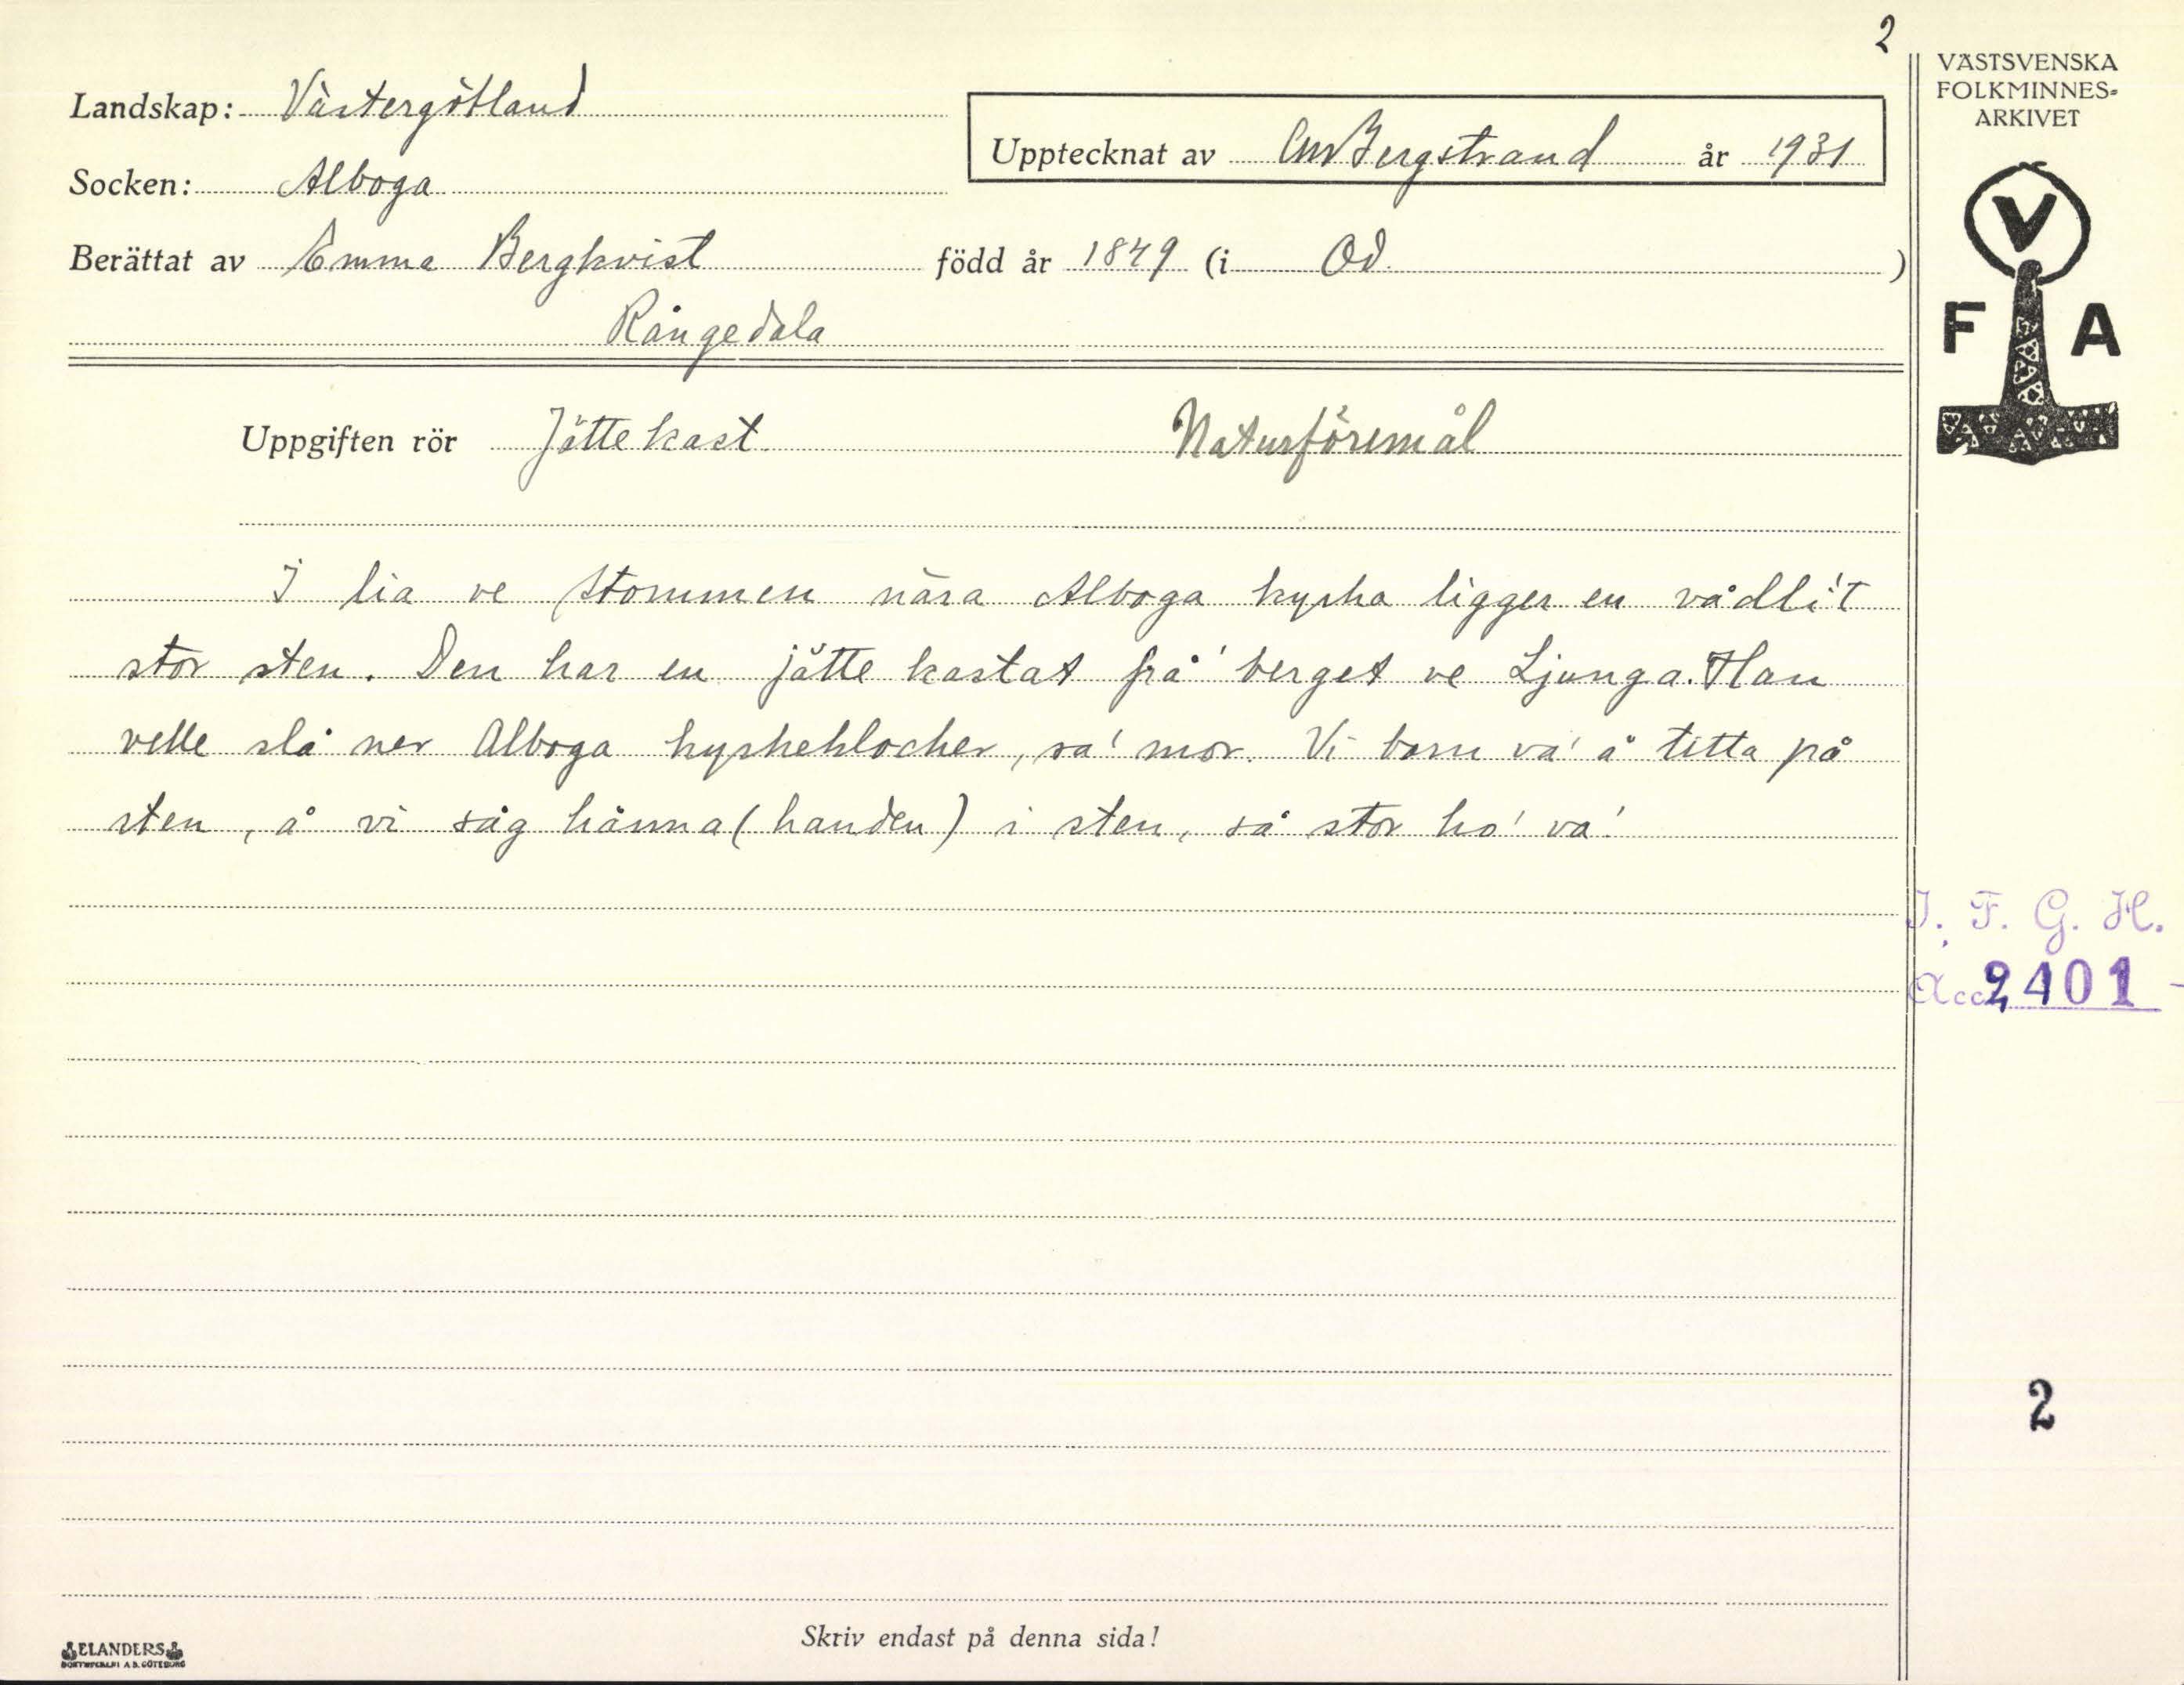 2
VÄSTSVENSKA
FOLKMINNES-
ARKIVET
Landskap: Västergötland
Upptecknat av CM Bergstrand år 1931
Socken: Alboga
Berättat av Emma Bergkvist född år 1849 (i Od )
Rångedala
V
F A
Uppgiften rör Jättekast Naturföremål
I lia ve Stommen nära Alboga kyrka ligger en vådli't
stor sten. Den har en jätte kastat frå' berget ve Ljunga. Han
velle slå ner Alboga kyrkeklocker, sa' mor. Vi barn va' å titta på
sten, å vi såg hänna (handen) i sten, så stor ho' va'
I. F. G. H.
Acc 2401
2
Skriv endast på denna sida!
ELANDERS
BOKTRYCKERI A.B. GÖTEBORG